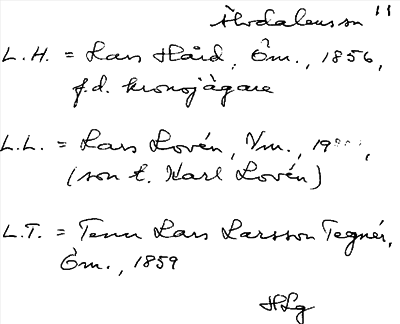 Älvdalen sn 11
L.H. = Lars Hård, Öm., 1856,
f.d. kronojägare
L.L. = Lars Lovén, Vm., 19
(son t. Karl Lovén)
L.T. = Tenn Lars Larsson Tegnér,
Öm., 1859
HLg